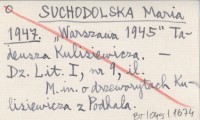 SUCHODOLSKA Maria
1947. „Warszawa 1945" Ta-
deusza Kulisiewicza. —
Dz. Lit. I, nr 9, il.
M. in. o drzeworytach Ku-
lisiewicza z Podhala.
1674